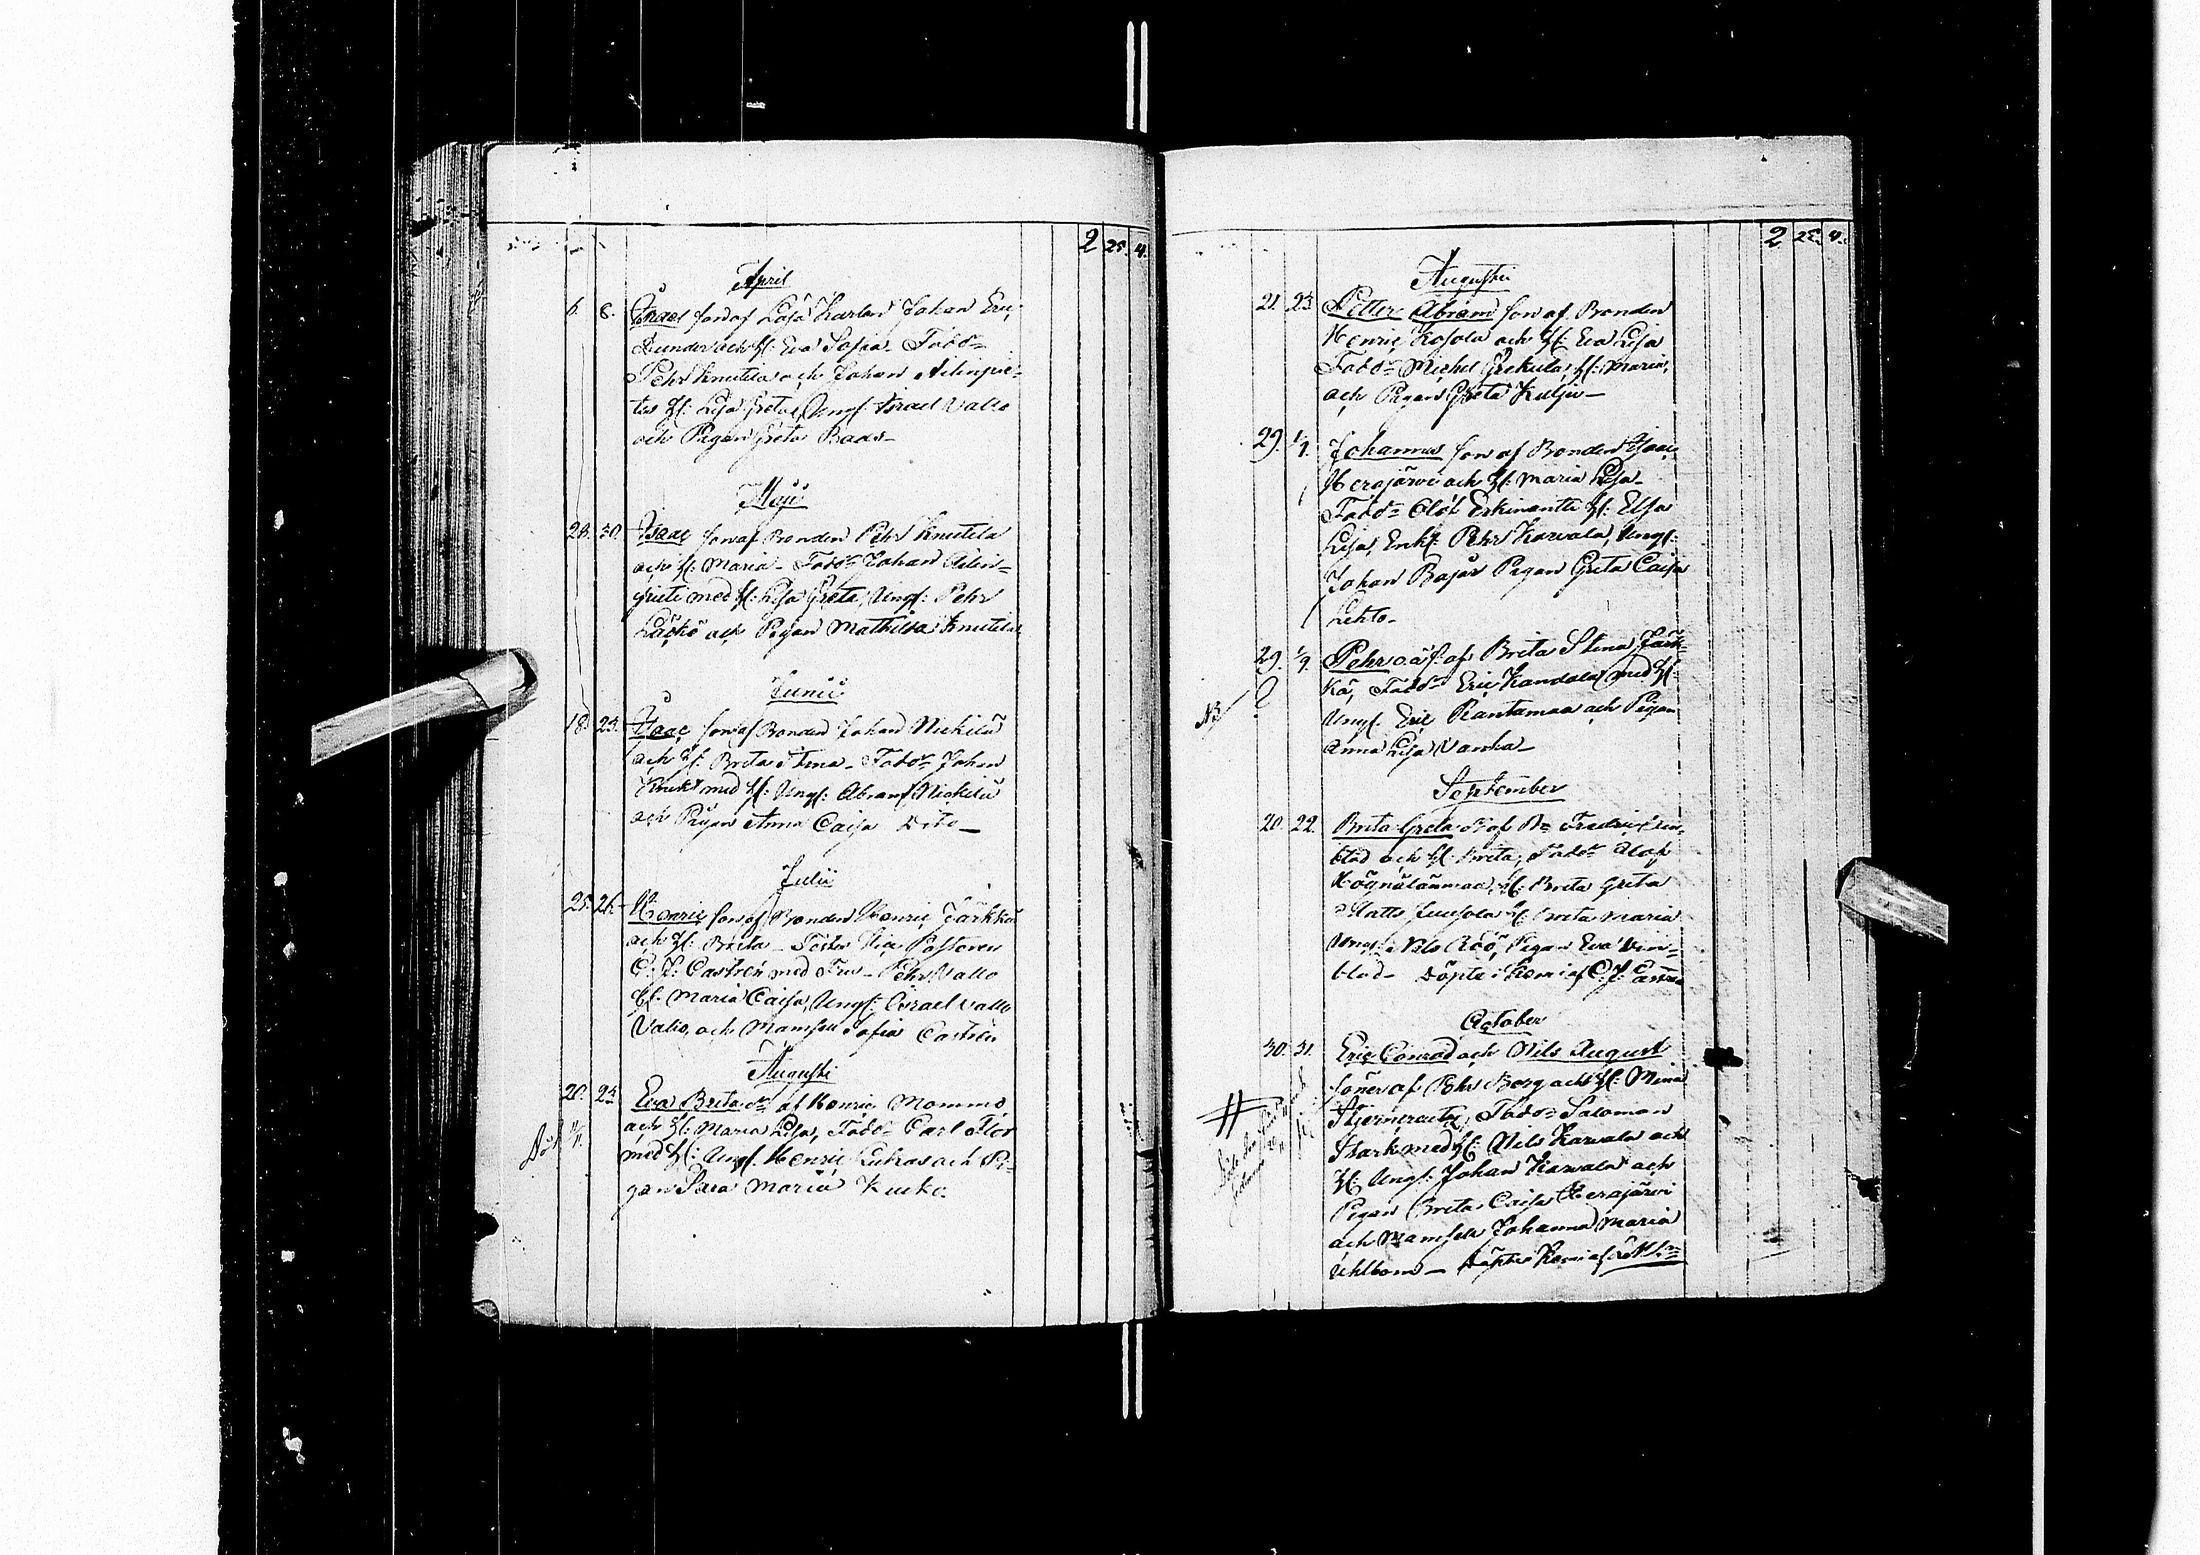 2 25. 4.
April
6. 8. Israel son af Lösa Karlen Johan Eric
och H: Eva Sofia. Fadd=
Pehr Knutila och Johan Ailinpie=
tis H: Lisa Greta, Ungk: Israel Vallo
och Pigan Greta Baas-
Maji
28. 30. Isaac son af Bonden Pehr Knutila
och H: Maria - Fadd= Johan Ailin=
pieti med H: Lisa Greta, Ungk: Pehr
och Pigan Mathilda Knutila
Junii
18. 23. Isaac son af Bonden Johan Nickilä
och H: Brita Stina - Fadd= Johan
med H: Ungk: Abram Nickilä
och Pigan Anna Caisa Dito -
Julii
25. 26. Henric son af Bonden Henric Järkkä
och H: Brita - Pastoren
C: J: Castrén med Fru - Pehr Vallo
H: Maria Caisa, Ungk: Israel Vallo
och Mamsell Sofia Castrén
Augusti
20. 23. Eva Brita dr af Henric Mommo
och H: Maria Lisa, Fadd= Carl
med H: Ungk. Henric Lukas och Pi=
gan Sara Maria Kuuko.
Död
2 25. 4.
Augusti
21. 23. Petter Abram son af Bonden
Henric Kosola och H: Eva Lisa
Fadd= Michel H: Maria,
och Pigan Greta Kulju -
29. 1/9. Johannes son af Bonden Isaac
Herajärvi och H: Maria Lisa -
Fadd= Olof Erkinantti H: Elsa
Lisa, Enkl: Pehr Karvala, Ungk:
Johan Bajar Pigan Greta Caisa
Lehto -
29. 1/9. Pehr o. ä. s: af Brita Stina Järk=
kä, Fadd= Eric Kandala med H:
NB ? Ungk. Eric Rantamaa och Pigan
Anna Lisa Vanha -
September
20. 22. Brita Greta dr af Bn Fredric Lin=
blad och H: Brita, Fadd= Olof
H: Brita Greta
Matts Juusola H: Brita Maria
Ungk: Nils Pigan Eva Lin=
blad - Döpte i Kemi af C. J. Castrén
October
30. 31. Eric Conrad och Nils August
söner af Pehr Borg och H: Mina
Fadd= Salomon
med H: Nils Karvala och
H: Ungk: Johan Karvala och
Pigan Brita Caisa Herajärvi
och Mamsell Johanna Maria
Uhlbom - Döpte i Kemi af